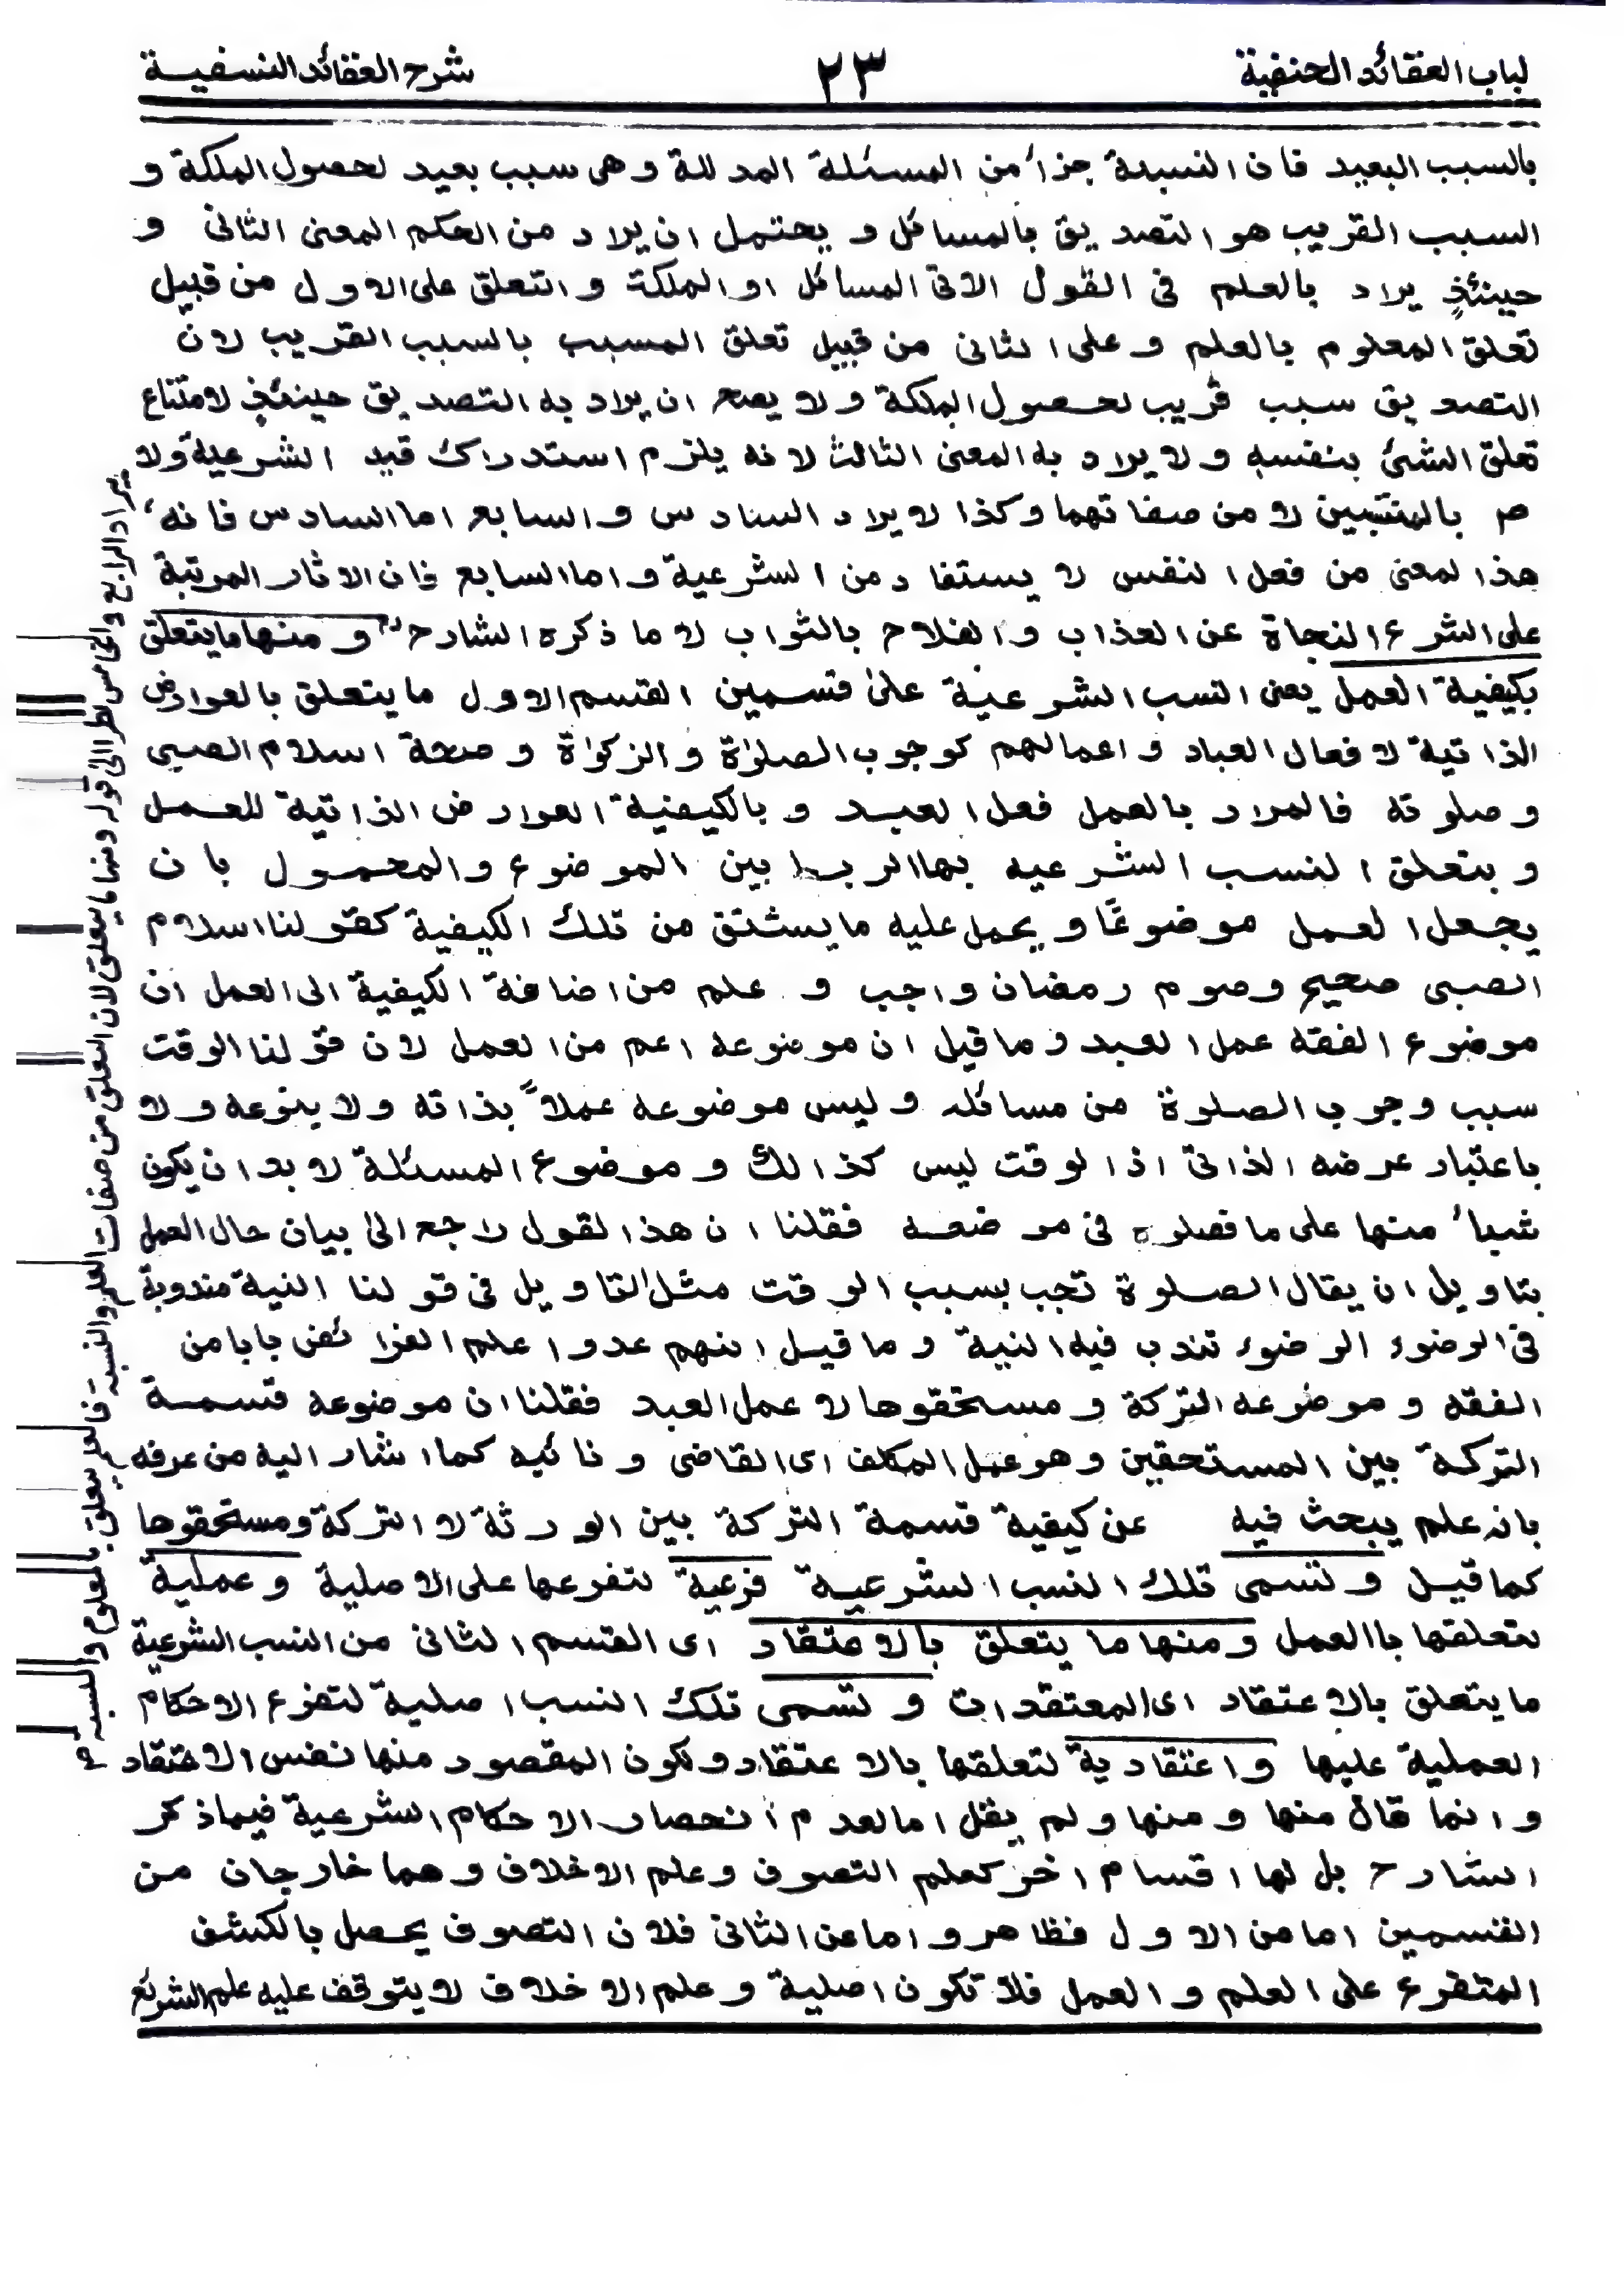 لباب العقائد الحنفية
٢٣
شرح العقائد النسفية
بالسبب البعيد فان النسبة جزأ من المسئلة المدللة وهى سبب بعيد لحصول الملكة و
السبب القريب هو التصديق بالمسائل و يحتمل ان يراد من الحكم المعنى الثانى و
حينئذٍ يراد بالعلم فى القول الاتى المسائل او الملكة و التعلق على الاول من قبيل
تعلق المعلوم بالعلم و على الثانى من قبيل تعلق المسبب بالسبب القريب لان
التصديق سبب قريب لحصول الملكة ولا يصح ان يراد به التصديق حينئذٍ لامتناع
تعلق الشئ بنفسه ولا يراد به المعنى الثالث لانه يلزم استدراك قيد الشرعية ولا
ص بالمنتسبين لا من صفاتهما وكذا لا يراد السادس و السابع اما السادس فانه
هذا لمعنى من فعل النفس لا يستفاد من الشرعية و اما السابع فان الاثار المرتبة
على الشرع النجاة عن العذاب و الفلاح بالثواب لا ما ذكره الشارح و منها ما يتعلق
بكيفية العمل يعنى النسب الشرعية على قسمين القسم الاول ما يتعلق بالعوارض
الذاتية لافعال العباد و اعمالهم كوجوب الصلوٰة و الزكوٰة و صحة اسلام الصبى
و صلوته فالمراد بالعمل فعل العبد و بالكيفية العوارض الذاتية للعمل
و بتعلق النسب الشرعيه بها الربط بين الموضوع والمحمول بان
يجعل العمل موضوعًا و يحمل عليه ما يشتق من تلك الكيفية كقولنا اسلام
الصبى صحيح وصوم رمضان واجب و علم من اضافة الكيفية الى العمل ان
موضوع الفقه عمل العبد و ما قيل ان موضوعه اعم من العمل لان قولنا الوقت
سبب وجوب الصلوة من مسائله و ليس موضوعه عملاً بذاته ولا بنوعه ولا
باعتبار عرضه الذاتى اذا لوقت ليس كذالك و موضوع المسئلة لا بد ان يكون
شيأ منها على ما فصلوه فى موضعه فقلنا ان هذا لقول راجع الىٰ بيان حال العمل
بتاويل ان يقال الصلوة تجب بسبب الوقت مثل التاويل فى قولنا النية مندوبة
فى الوضوء الوضوء تندب فيه النية و ما قيل انهم عدوا علم الفرائض بابا من
الفقه و موضوعه التركة و مستحقوها لا عمل العبد فقلنا ان موضوعه قسمة
التركة بين المستحقين و هو عمل المكلف اى القاضى و نائبه كما اشار اليه من عرفه
بانه علم يبحث فيه عن كيفية قسمة التركة بين الورثة لا التركة ومستحقوها
كما قيل و تسمى تلك النسب الشرعية فرعية لتفرعها على الاصلية و عملية
لتعلقها باالعمل و منها ما يتعلق بالاعتقاد اى القسم الثانى من النسب الشرعية
ما يتعلق بالاعتقاد اى المعتقدات و تسمى تلك النسب اصلية لتفرع الاحكام
العملية عليها و اعتقادية لتعلقها بالاعتقاد و لكون المقصود منها نفس الاعتقاد
و انما قال منها و منها و لم يقل اما لعدم انحصار الاحكام الشرعية فيما ذكر
الشارح بل لها اقسام اخر كعلم التصوف و علم الاخلاق و هما خارجان من
القسمين اما من الاول فظاهر و اما عن الثانى فلان التصوف يحصل بالكشف
المتفرع على العلم و العمل فلا تكون اصلية و علم الاخلاق لا يتوقف عليه علم الشرائع
يراد الرابع والخامس نظرا الى قوله ومنها ما يتعلق لان التعلق من صفات العلم والنسبة فالعلم يتعلق بالمعلوم والنسبة